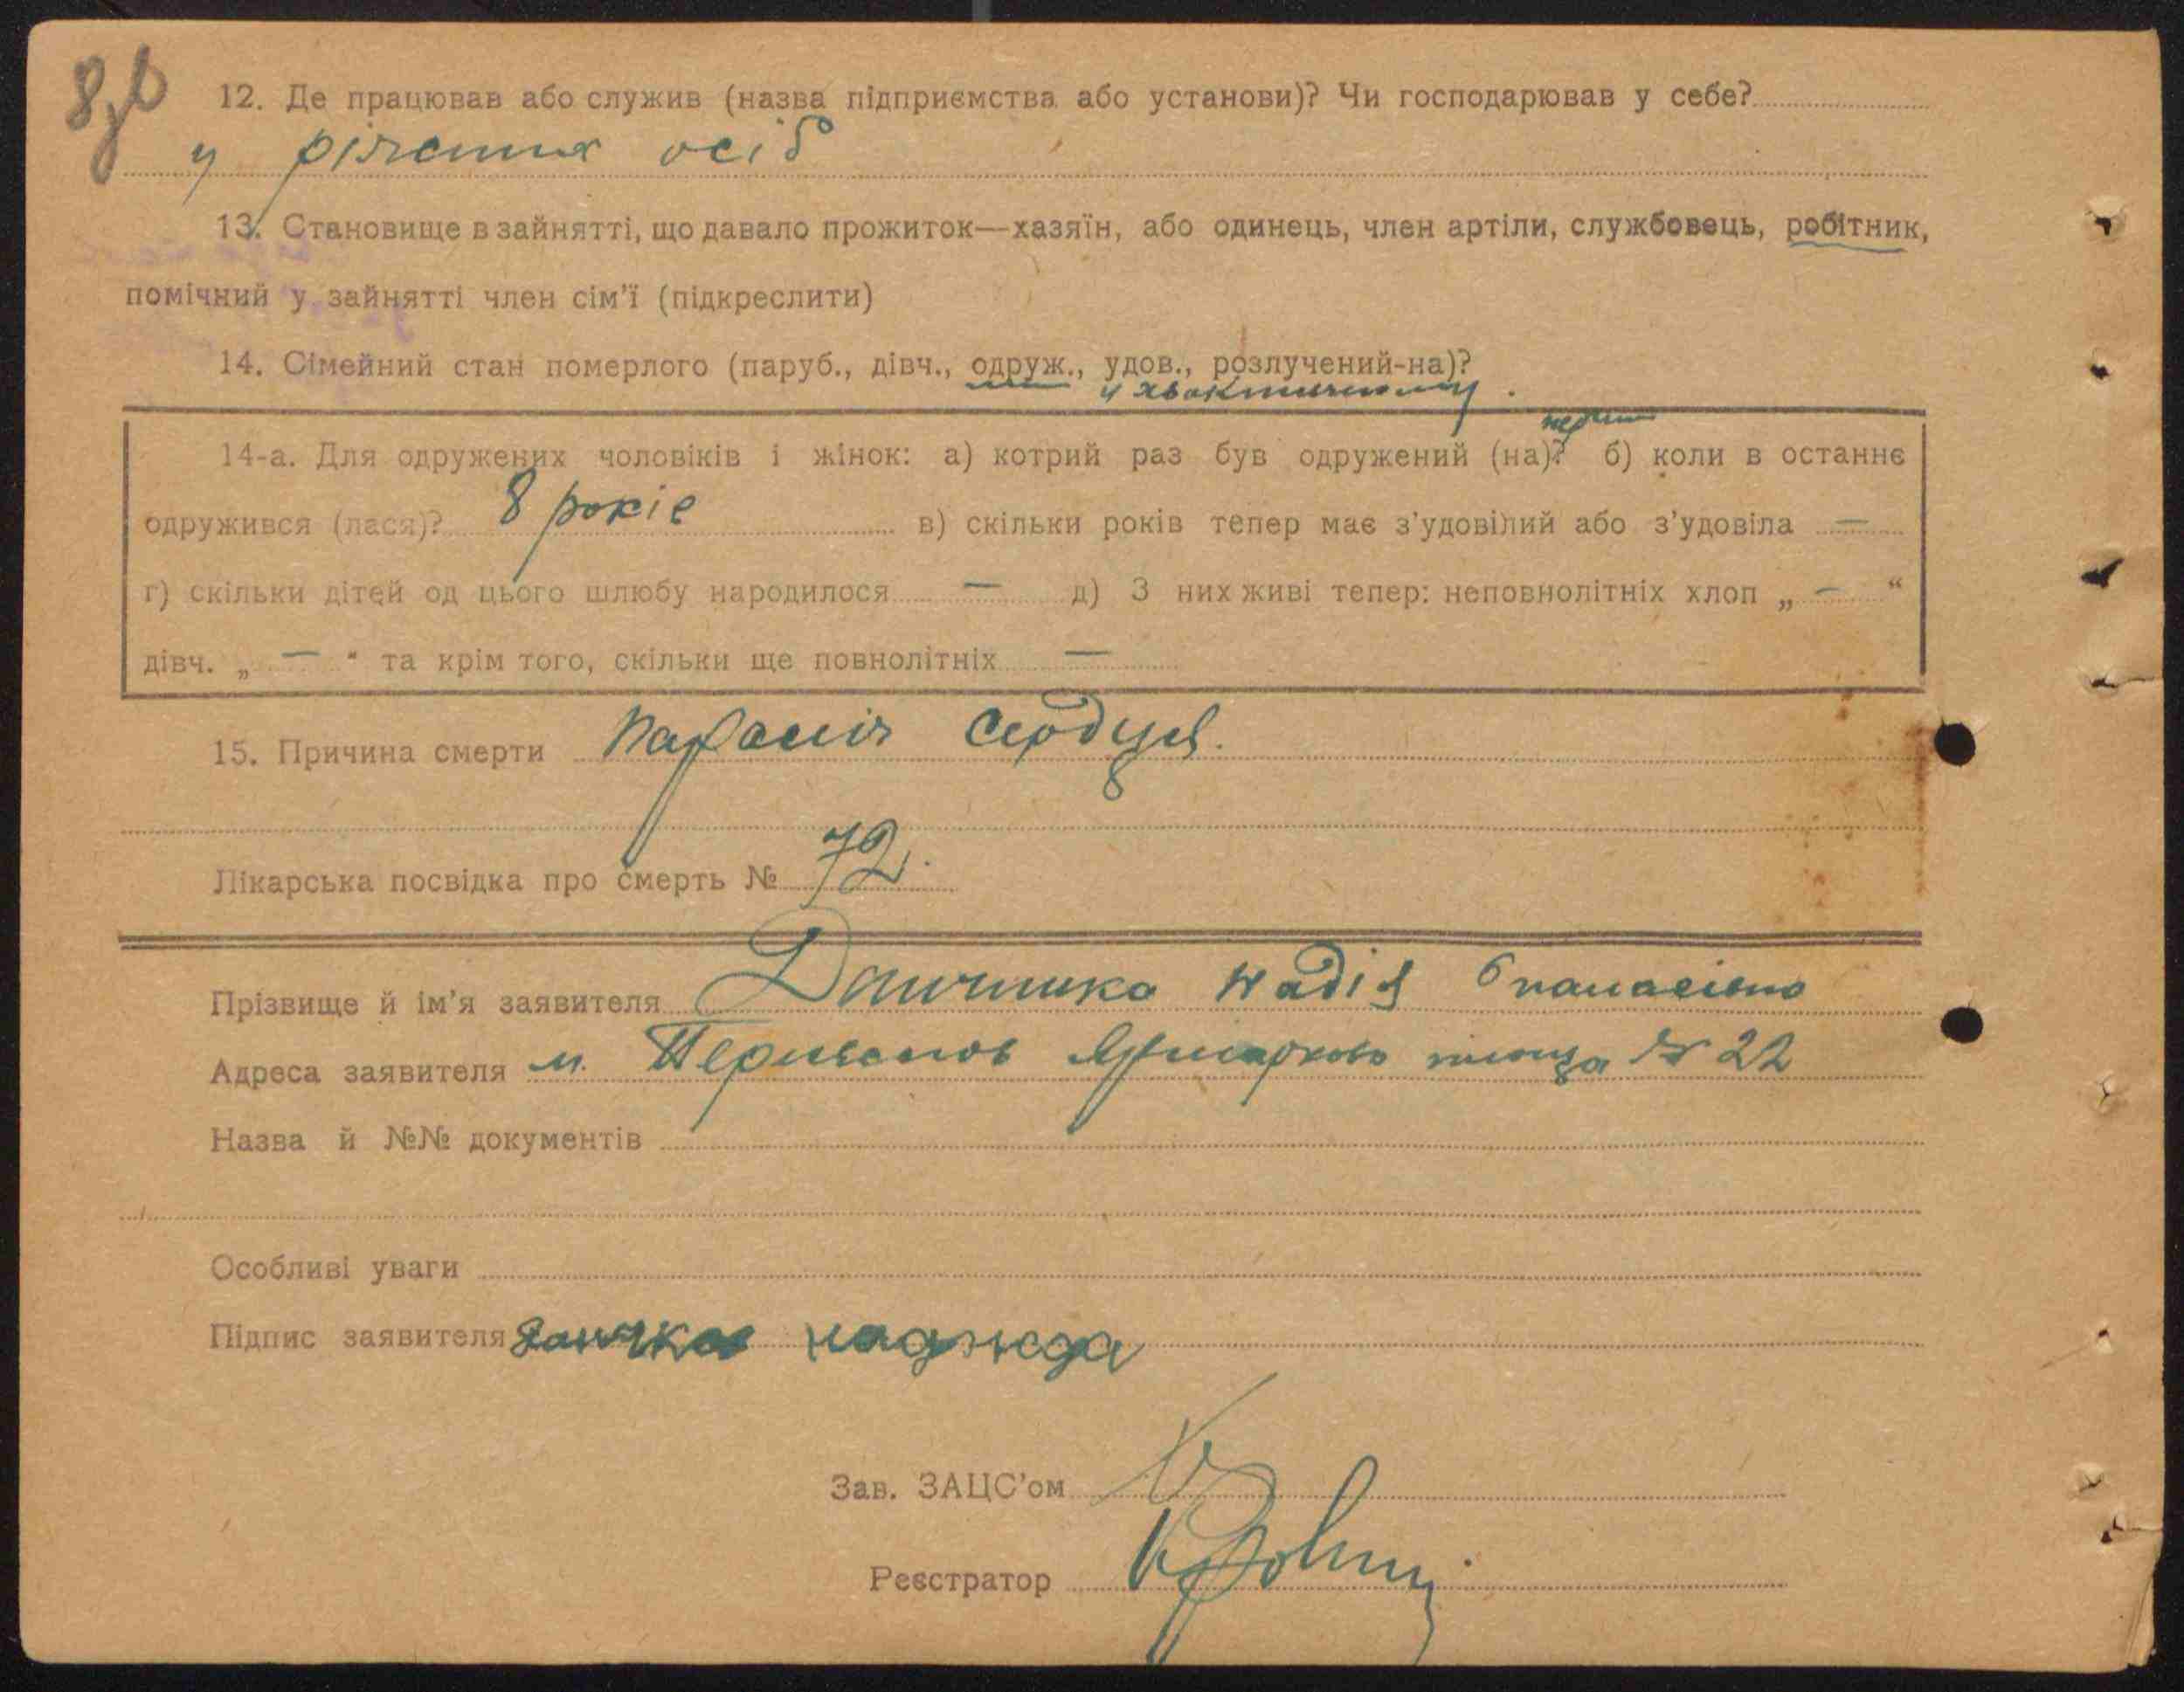 8зв
12. Де працював або служив (назва підприємства або установи)? Чи господарював у себе?
у різених осіб
13. Становище в зайнятті, що давало прожиток—хазяїн, або одинець, член артіли, службовець, робітник,
помічний у зайнятті член сім'ї (підкреслити)
14. Сімейний стан померлого (паруб., дівч., одруж., удов., розлучений-на)?
у хвактичному.
14-а. Для одружених чоловіків і жінок: а) котрий раз був одружений (на)? перший б) коли в останнє
одружився (лася)? 8 років в) скільки років тепер має з'удовілий або з'удовіла —
г) скільки дітей од цього шлюбу народилося — д) З них живі тепер: неповнолітніх хлоп „ — “
дівч. „ — “ та крім того, скільки ще повнолітніх —
15. Причина смерти Параліч сердця.
Лікарська посвідка про смерть № 72.
Прізвище й ім'я заявителя Надія
Адреса заявителя м. Ярмаркова площа № 22
Назва й №№ документів
Особливі уваги
Підпис заявителя
Зав. ЗАЦС'ом
Реєстратор